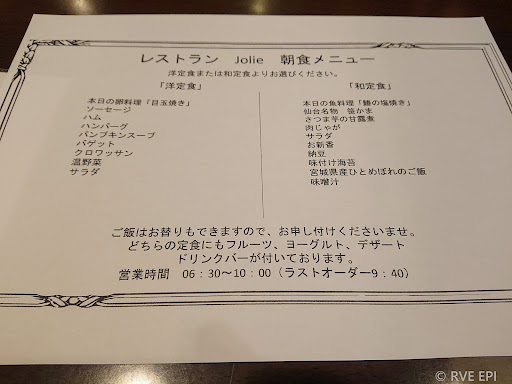 レストラン Jolie 朝食メニュー
洋定食または和定食よりお選びください。
「洋定食」
本日の卵料理「目玉焼き」
ソーセージ
ハム
ハンバーグ
パンプキンスープ
バゲット
クロワッサン
温野菜
サラダ
「和定食」
本日の魚料理「鰆の塩焼き」
仙台名物 笹かま
さつま芋の甘露煮
肉じゃが
サラダ
お新香
納豆
味付け海苔
宮城県産ひとめぼれのご飯
味噌汁
ご飯はお替りもできますので、お申し付けくださいませ。
どちらの定食にもフルーツ、ヨーグルト、デザート
ドリンクバーが付いております。
営業時間 06：30～10：00（ラストオーダー9：40）
© RVE EPI